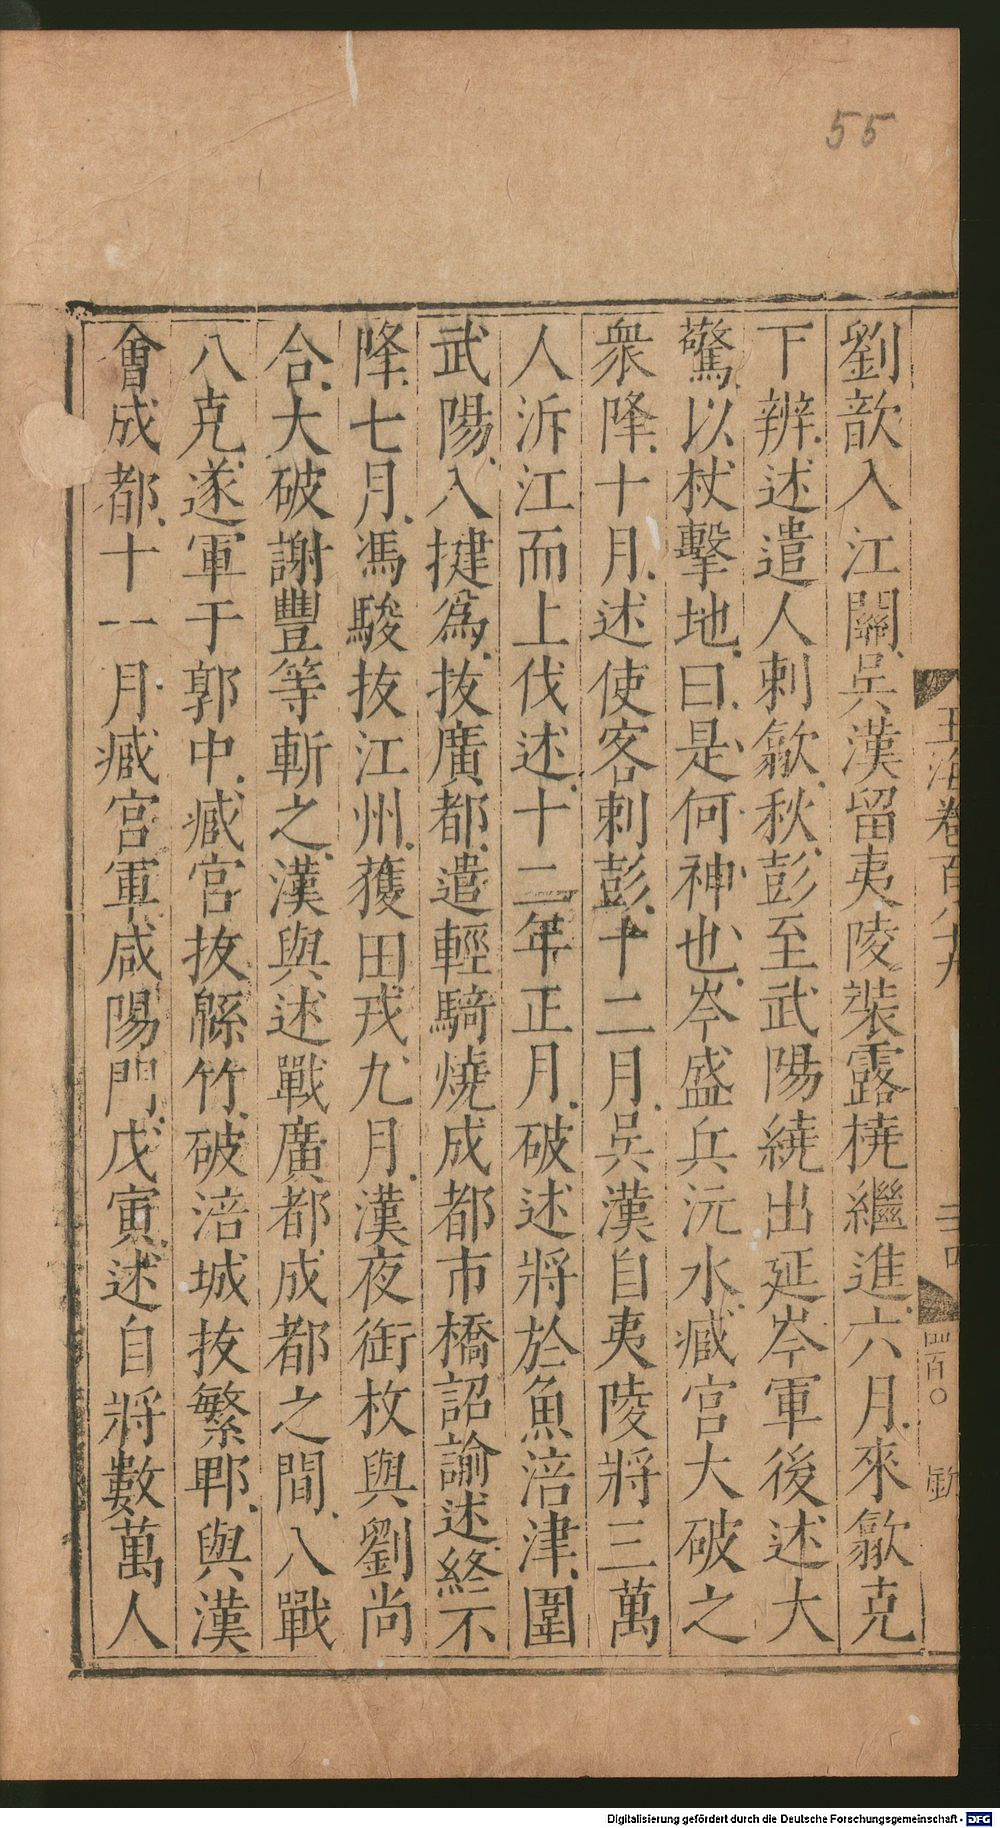 55
劉歆入江關吳漢留夷陵裝露橈繼進六月來歙克
下辨述遣人刺歙秋彭至武陽繞出延岑軍後述大
驚以杖擊地曰是何神也岑盛兵沅水臧宮大破之
衆降十月述使客刺彭十二月吳漢自夷陵將三萬
人泝江而上伐述十二年正月破述將於魚涪津圍
武陽入揵爲拔廣都遣輕騎燒成都市橋詔諭述終不
降七月馮駿拔江州獲田戎九月漢夜銜枚與劉尚
合大破謝豐等斬之漢與述戰廣都成都之間八戰
八克遂軍于郭中臧宮拔緜竹破涪城拔繁郫與漢
會成都十一月臧宮軍咸陽門戊寅述自將數萬人
玉海卷百八十九
二十四
四百〇
Digitalisierung gefördert durch die Deutsche Forschungsgemeinschaft - DFG